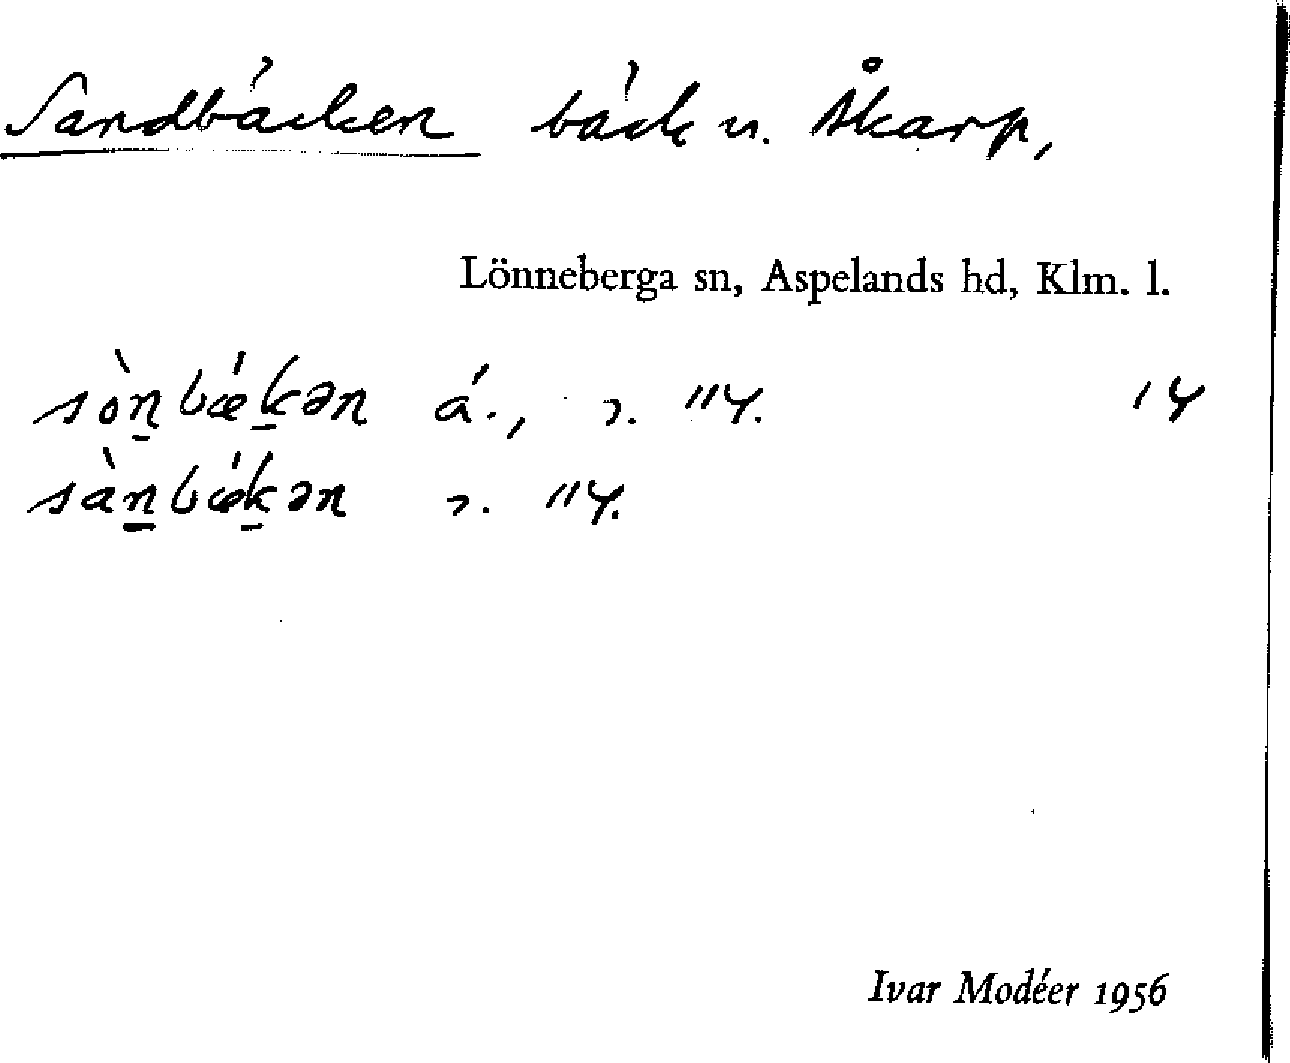 Sandbäcken bäck u. Åkarp,
Lönneberga sn, Aspelands hd, Klm. l.
sòn̠bǽk̠ən á., ɔ. 114. 14
sàn̠bǽk̠ən ɔ. 114.
Ivar Modéer 1956